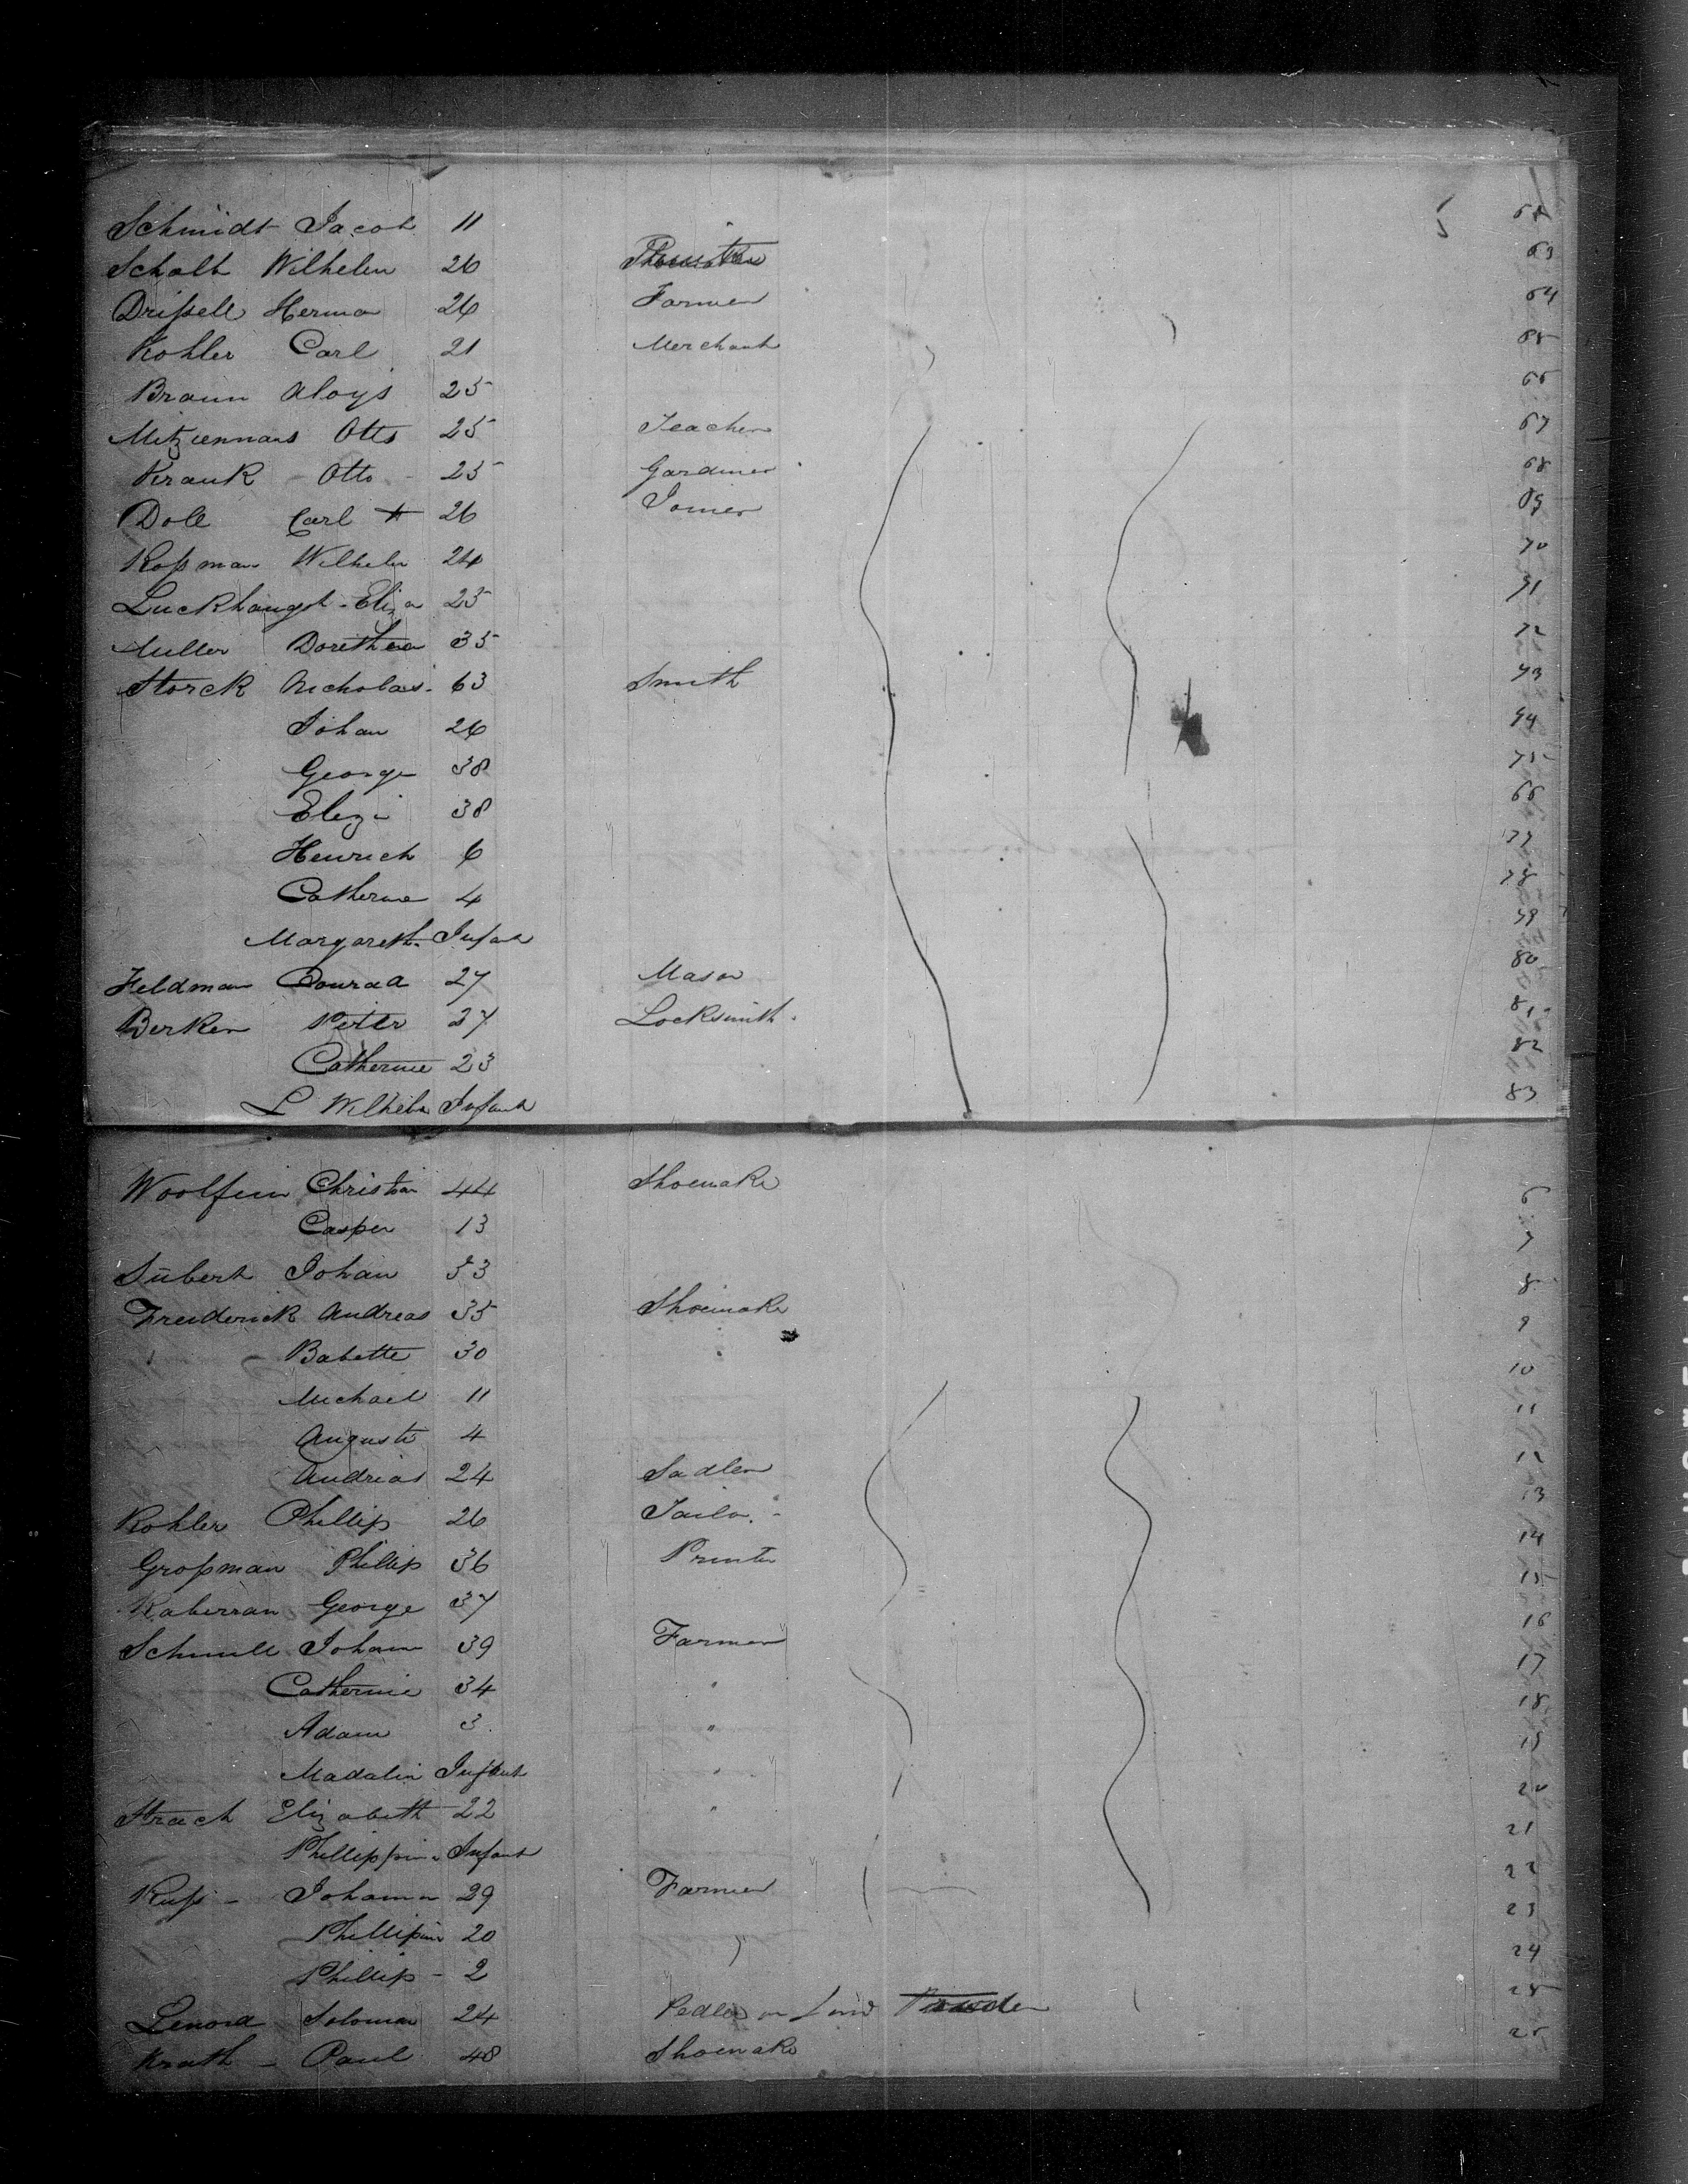 Schmidt Jacob 11
Scholt Wilhelm 26
Drißell Herman 26 Farmer 64
Kohler Carl 21 Merchant
Braun Aloys 25
Otto 25 Teacher 67
Krauk Otto - 25 Gardiner 68
Doll Carl 26 Joiner 69
Roßman Wilhelm 24 70
Luckhaugh - Eliza 25 71
Muller Dorethea 35 72
Storck Nicholas - 63 Smith 73
Johan 26 74
George 38 75
Eliza 38
Henrich 6 77
Catherine 4 78
Margareth. Infant 79
Feldman Conrad 27 Mason 80
Berker Peter 27 Locksmith. 81
Catherine 23 82
L Wilhelm Infant 83
Woolfein Christian 44 Shoemake
Casper 13 7
Sübert Johan 33 8
Freiderick Andreas 35 Shoemake 9
Babette 30 10
Michael 11 11
Auguste 4 12
Andreas 24 Sadler 13
Kohler Phillip 26 Tailor 14
Großman Phillip 36 Printer 15
Raberran George 37 16
Schmill Johann 39 Farmer 17
Catherine 34 " 18
Adam 3 " 19
Madalin Infant " 20
Strach Elizabeth 22 " 21
Phillippine Infant 22
Ruß - Johann 29 Farmer 23
Phillipine 20
Phillip - 2 24
Lenord Soloman 24 Pedler 25
Krath - Paul 48 Shoemake